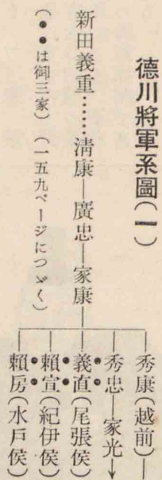 德川將軍系圖(一)
新田義重……淸康―廣忠―家康
秀康(越前)
秀忠―家光
義直(尾張侯)
賴宣(紀伊侯)
賴房(水戶侯)
(●●は御三家) (一五九ページにつゞく)